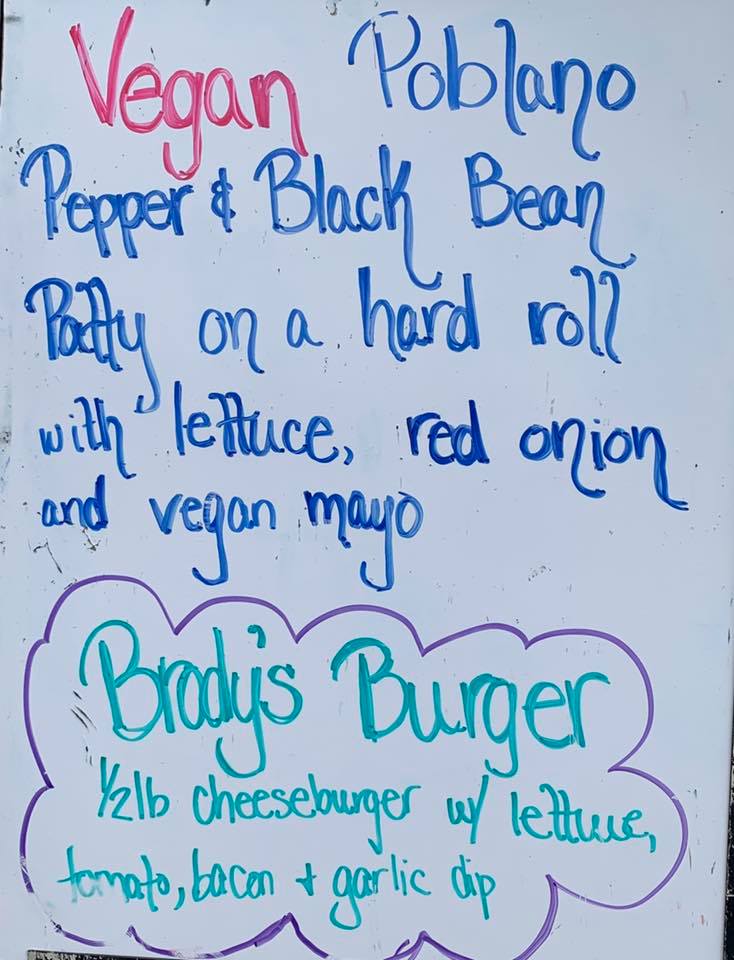 Vegan Poblano
Pepper & Black Bean
Patty on a hard roll
with lettuce, red onion
and vegan mayo
Brody's Burger
1/2lb cheeseburger w/ lettuce,
tomato, bacon + garlic dip